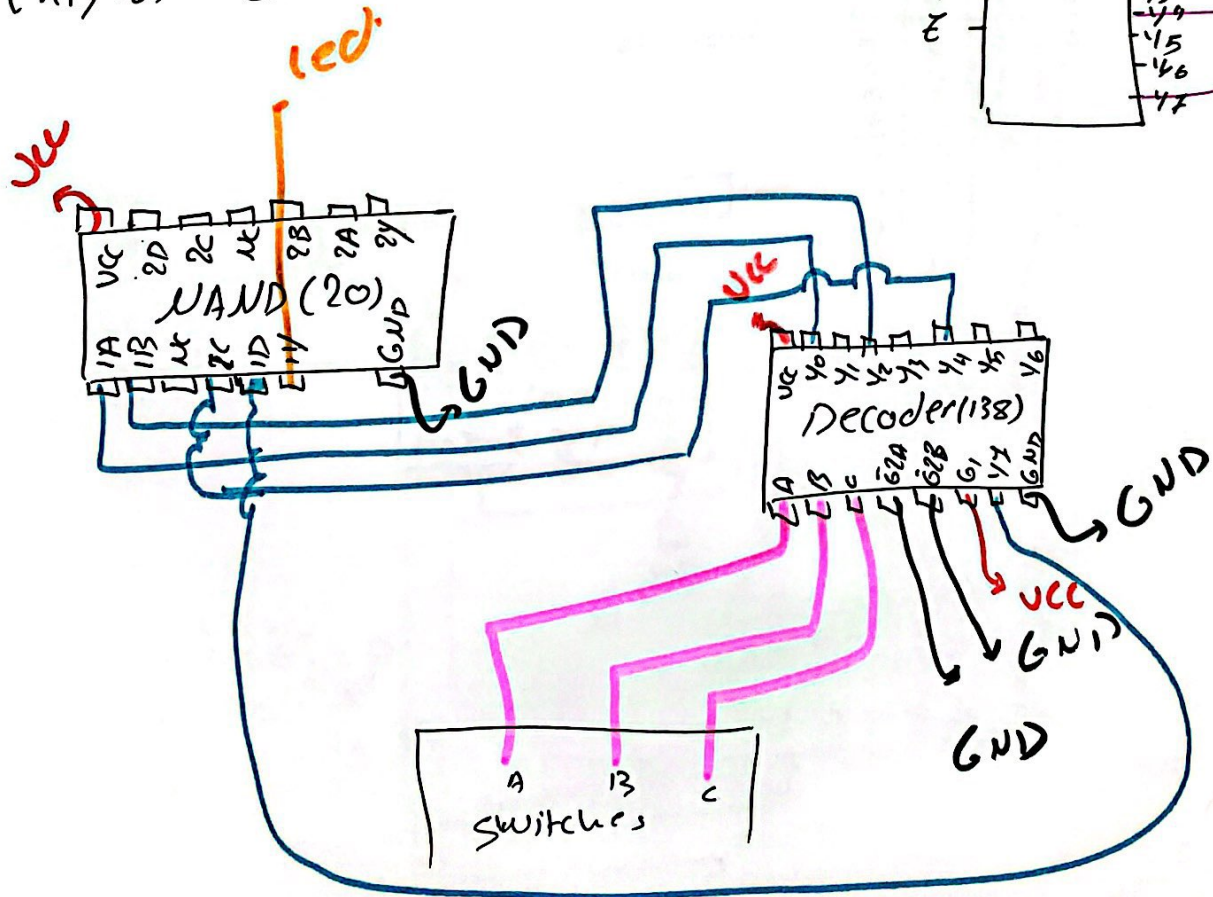 led
Z
Y4
Y5
Y6
Y7
VCC
VCC 2D 2C NC 2B 2A 2Y
NAND (20)
1A 1B NC 1D 1Y GND
GND
VCC
VCC Y0 Y1 Y2 Y3 Y4 Y5 Y6
Decoder(138)
A B C G2A G2B G1 Y7 GND
GND
VCC
GND
GND
A B C
Switches